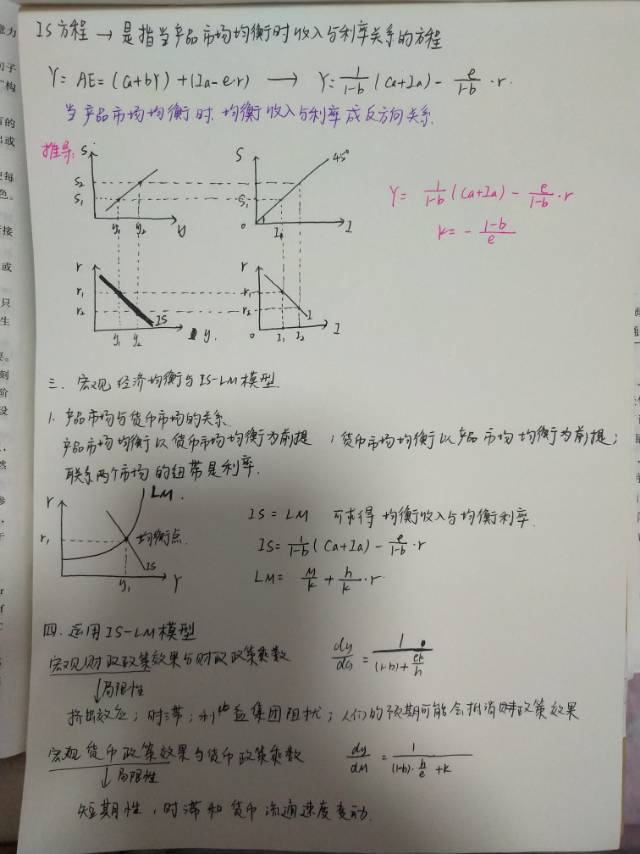 IS方程 → 是指当产品市场均衡时收入与利率关系的方程
Y = AE = (Ca+bY) + (Ia-e·r) → Y = 1/(1-b) (Ca+Ia) - e/(1-b) · r.
当产品市场均衡时.均衡收入与利率成反方向关系.
推导:
S S2 S1 y1 y2 y
S S1 45° O I1 I
Y = 1/(1-b) (Ca+Ia) - e/(1-b) · r
k = - (1-b)/e
r r1 r2 IS y1 y2 y.
r r1 r2 I O I1 I2 I
三. 宏观经济均衡与IS-LM模型
1. 产品市场与货币市场的关系
产品市场均衡以货币市场均衡为前提 ; 货币市场均衡以产品市场均衡为前提;
联系两个市场的纽带是利率.
r LM. r1 均衡点 IS y1 Y
IS = LM 可求得均衡收入与均衡利率.
IS = 1/(1-b) (Ca+Ia) - e/(1-b) · r
LM = M/k + h/k · r
四. 运用IS-LM模型
宏观财政政策效果与财政政策乘数 dy/dG = 1/((1-b)+ek/h)
↓局限性
挤出效应; 时滞; 利益集团阻扰; 人们的预期可能会抵消财政政策效果
宏观货币政策效果与货币政策乘数 dy/dM = 1/((1-b)·h/e+k)
↓局限性
短期性, 时滞和货币流通速度变动.